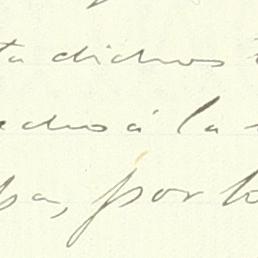 ta dichos
echos á la
pa, por lo